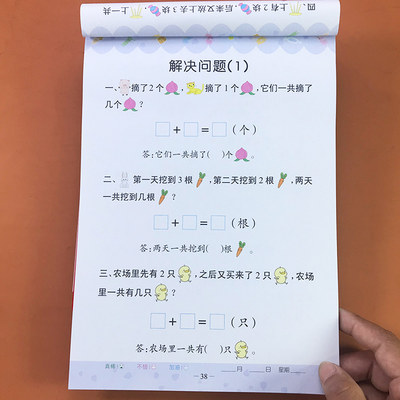 四、 上有2块 ，后来又放上去3块 ，上一共
解决问题(1)
一、 摘了2个 ， 摘了1个 ，它们一共摘了
几个 ？
□+□=□(个)
答:它们一共摘了( )个 。
二、 第一天挖到3根 ，第二天挖到2根 ，两天
一共挖到几根 ？
□+□=□(根)
答:两天一共挖到( )根 。
三、农场里先有2只 ，之后又买来了2只 ，农场
里一共有几只 ？
□+□=□(只)
答:农场里一共有( )只 。
月 日 星期
—38—